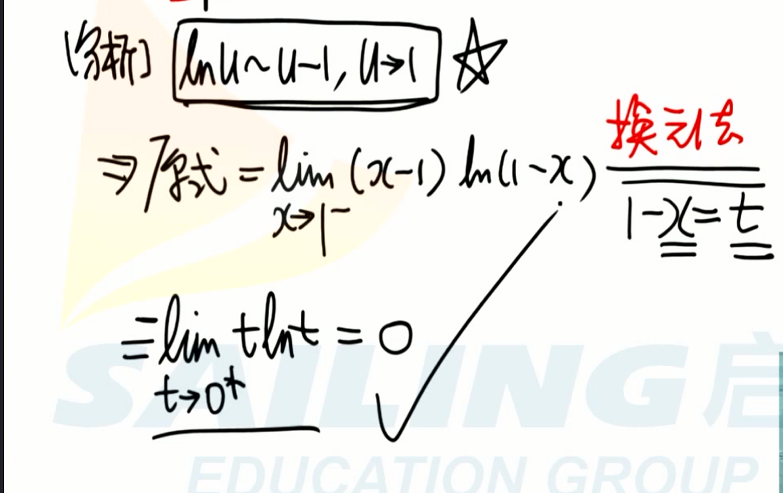 [分析] ln u ~ u-1, u→1 ☆
⇒ 原式 = lim (x-1) ln(1-x) 换元法
x→1⁻ 1-x=t
= lim t ln t = 0
t→0⁺
SAILING 启
EDUCATION GROUP